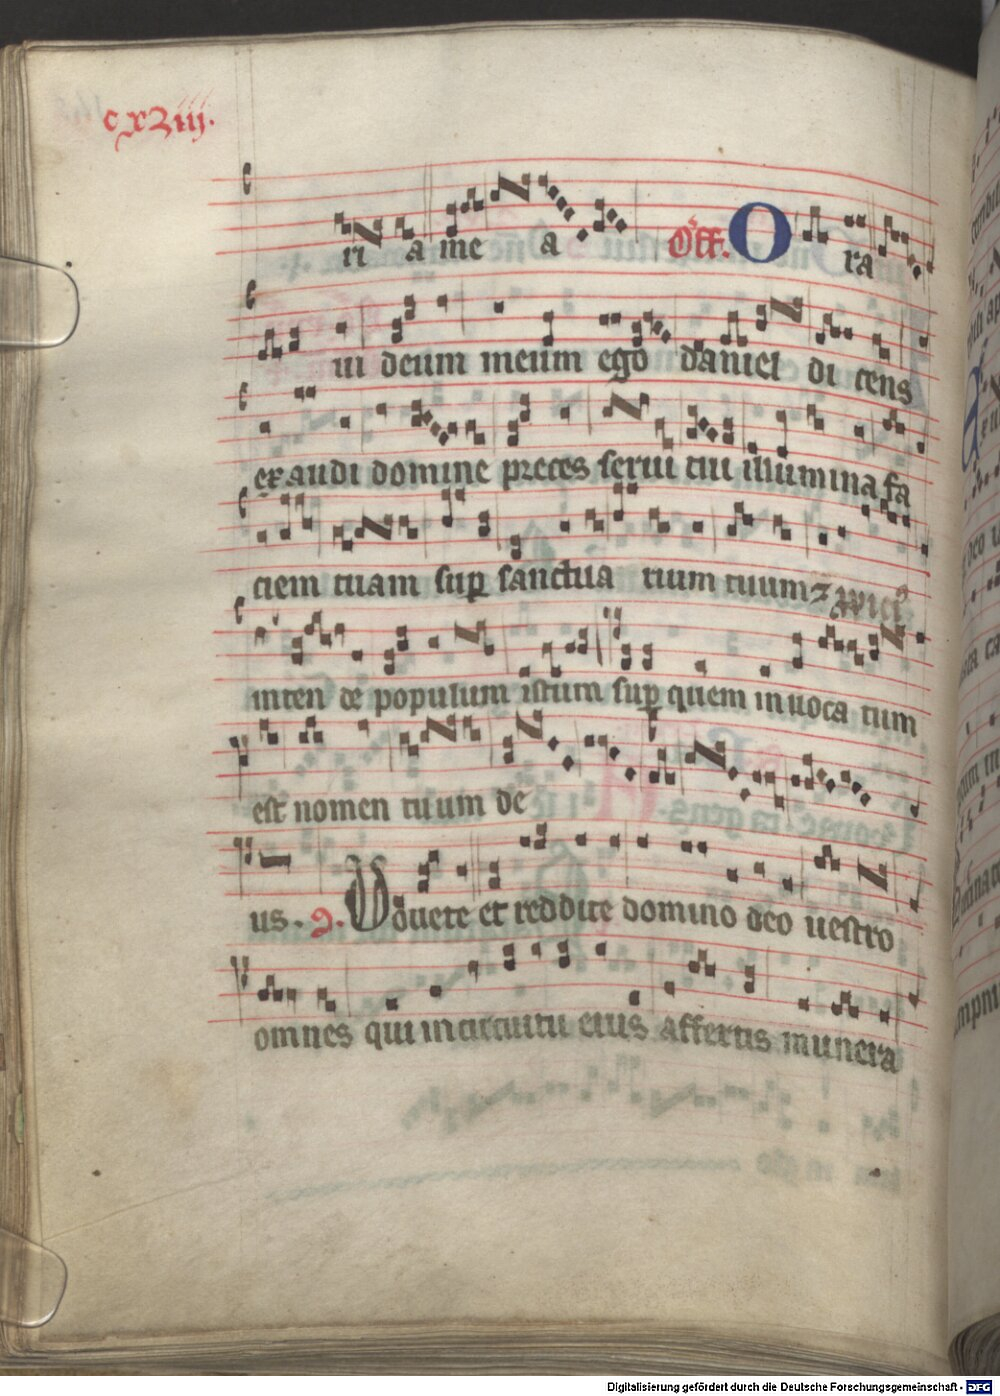 cxziiij.
ri a me a Off. O ra
ui deum meum ego daniel di cens
exaudi domine preces serui tui illumina fa
ciem tuam sup sanctua rium tuum z
inten de populum istum sup quem inuoca tum
est nomen tuum de
us. Vouete et reddite domino deo uestro
omnes qui in circuitu eius affertis munera
Digitalisierung gefördert durch die Deutsche Forschungsgemeinschaft - DFG